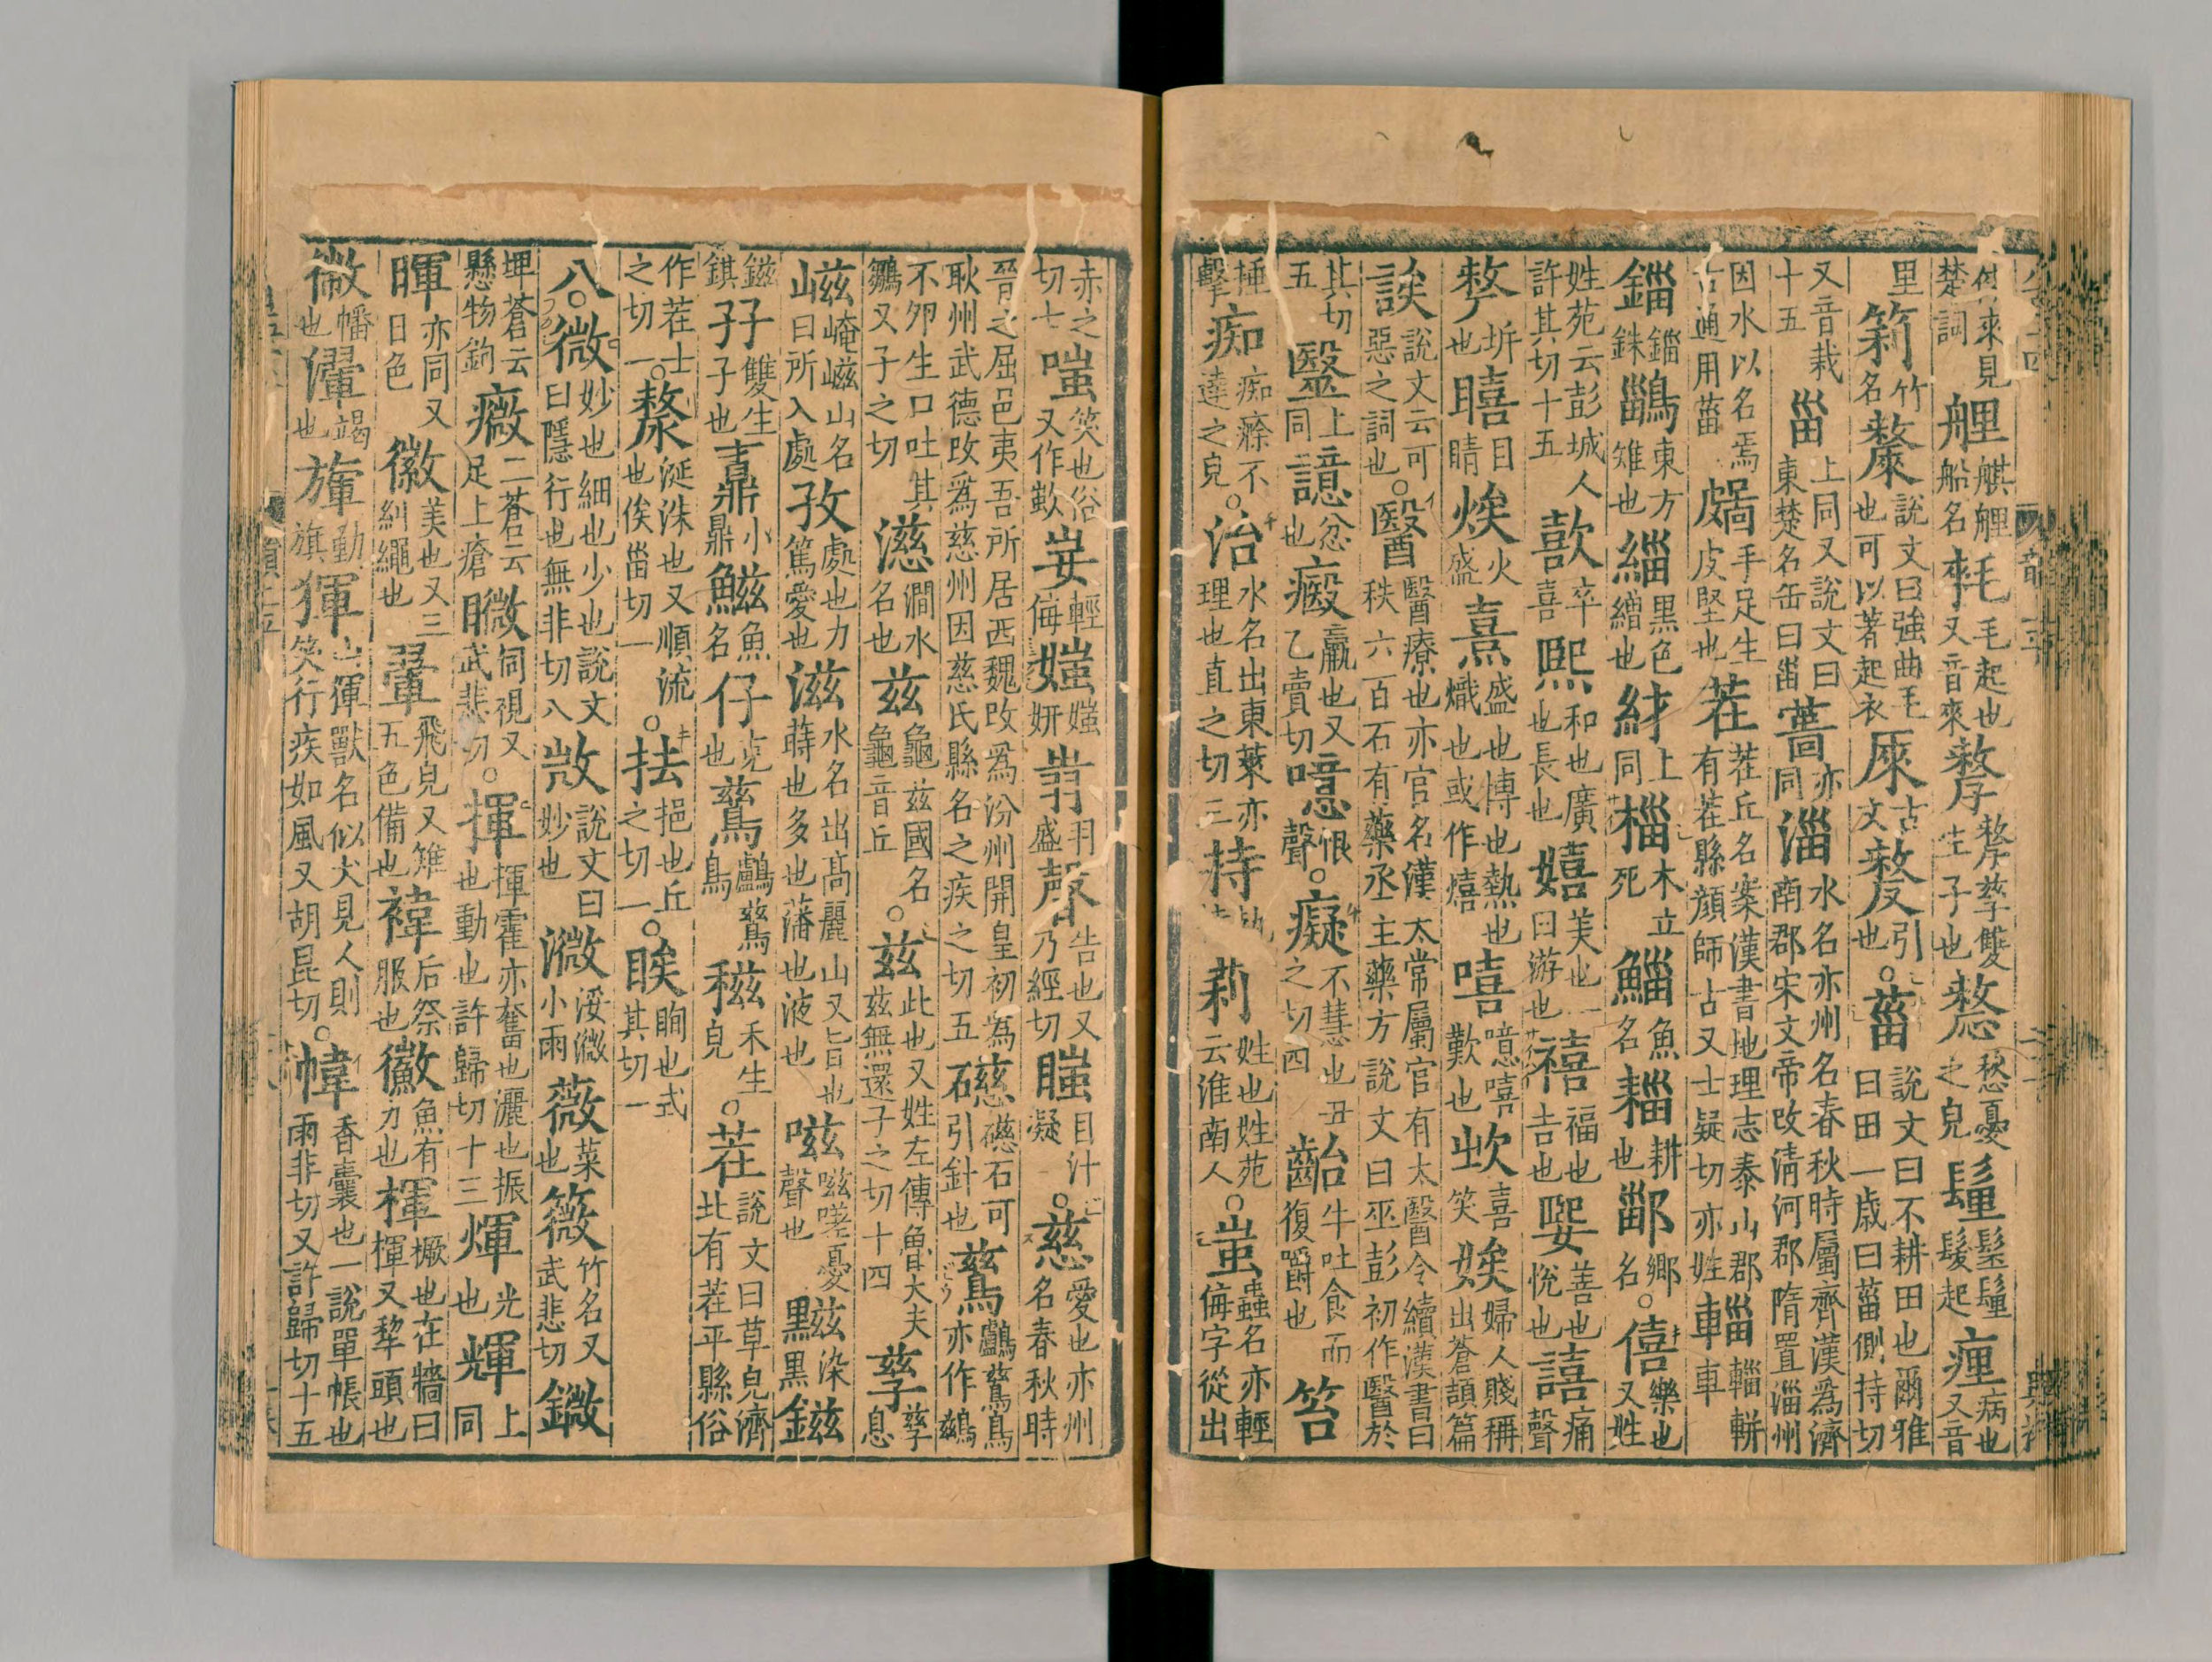 來見楚詞艃艃船名毛起也又音來孷雙生子也愁憂之皃髮起病也又音
里竹名氂說文曰強曲毛也可以著起衣古文引也○菑說文曰不耕田也爾雅曰田一歲曰菑側持切
又音栽十五甾上同又說文曰東楚名缶曰甾葘亦同淄水名亦州名春秋時屬齊漢爲濟南郡宋文帝改淸河郡隋置淄州
因水以名焉古通用菑手足生皮堅也茬茬丘名案漢書地理志泰山郡有茬縣顏師古又士疑切亦姓輜輜軿車
錙錙銖鶅東方雉也緇黑色繒也紂上同椔木立死鯔魚名䎩耕也鄑鄉名○僖樂也又姓
姓苑云彭城人許其切十五歖卒喜熙和也廣也長也嬉美也一曰游也禧福也吉也媐善也悅也譆痛聲
坼也瞦目睛焌火盛熹盛也博也熱也熾也或作熺嘻噫嘻歎也㰞喜笑娭婦人賤稱出蒼頡篇
誒說文云可惡之詞也○醫醫療也亦官名漢太常屬官有太醫令續漢書曰秩六百石有藥丞主藥方說文曰巫彭初作醫於
其切五毉上同譩忿也㾨羸也又乙賣切噫恨聲○癡不慧也丑之切四齝牛吐食而復嚼也笞
捶擊痴痴瘵不達之皃○治水名出東萊亦理也直之切三持莉姓也姓苑云淮南人○蚩蟲名亦輕侮字從出
赤之切七嗤笑也俗又作歎㛂輕侮媸媸姸羽盛告也又乃經切目汁凝○慈愛也亦州名春秋時
晉之屈邑夷吾所居西魏改爲汾州開皇初爲耿州武德改爲慈州因慈氏縣名之疾之切五礠礠石可引針也鶿鸕鶿鳥亦作鷀
不夘生口吐其鶵又子之切濨㵎水名也茲龜茲國名龜音丘○茲此也又姓左傳魯大夫茲無還子之切十四孳孳息
嵫崦嵫山名山日所入處孜處也力篤愛也滋水名出高麗山又旨也蒔也多也蕃也液也嗞嗞嗟憂聲也黰染黑鎡
鎡錤孖雙生子子也鼒小鼎鰦魚名仔克也鶿鸕鶿鳥稵禾生皃○茬說文曰草皃濟北有茬平縣俗
作茬士之切一○漦涎沫也又順流也俟甾切一○抾挹也丘之切一○眱眴也式其切一
八○微妙也細也少也說文曰隱行也無非切八㪨說文曰妙也溦浽溦小雨薇菜也𥵨竹名又武悲切鐖
埤蒼云懸物鉤癓二蒼云足上瘡矀伺視又武悲切○揮揮霍亦奮也灑也振也動也許歸切十三煇光也輝上同
暉亦同又日色徽美也又三糾繩也翬飛皃又雉五色備也褘后祭服也鰴魚有力也楎橛也在牆曰楎又犂頭也
幑幡也㒑竭也旟動旗㹆山㹆獸名似犬見人則笑行疾如風又胡昆切○幃香囊也一說單帳也雨非切又許歸切十五